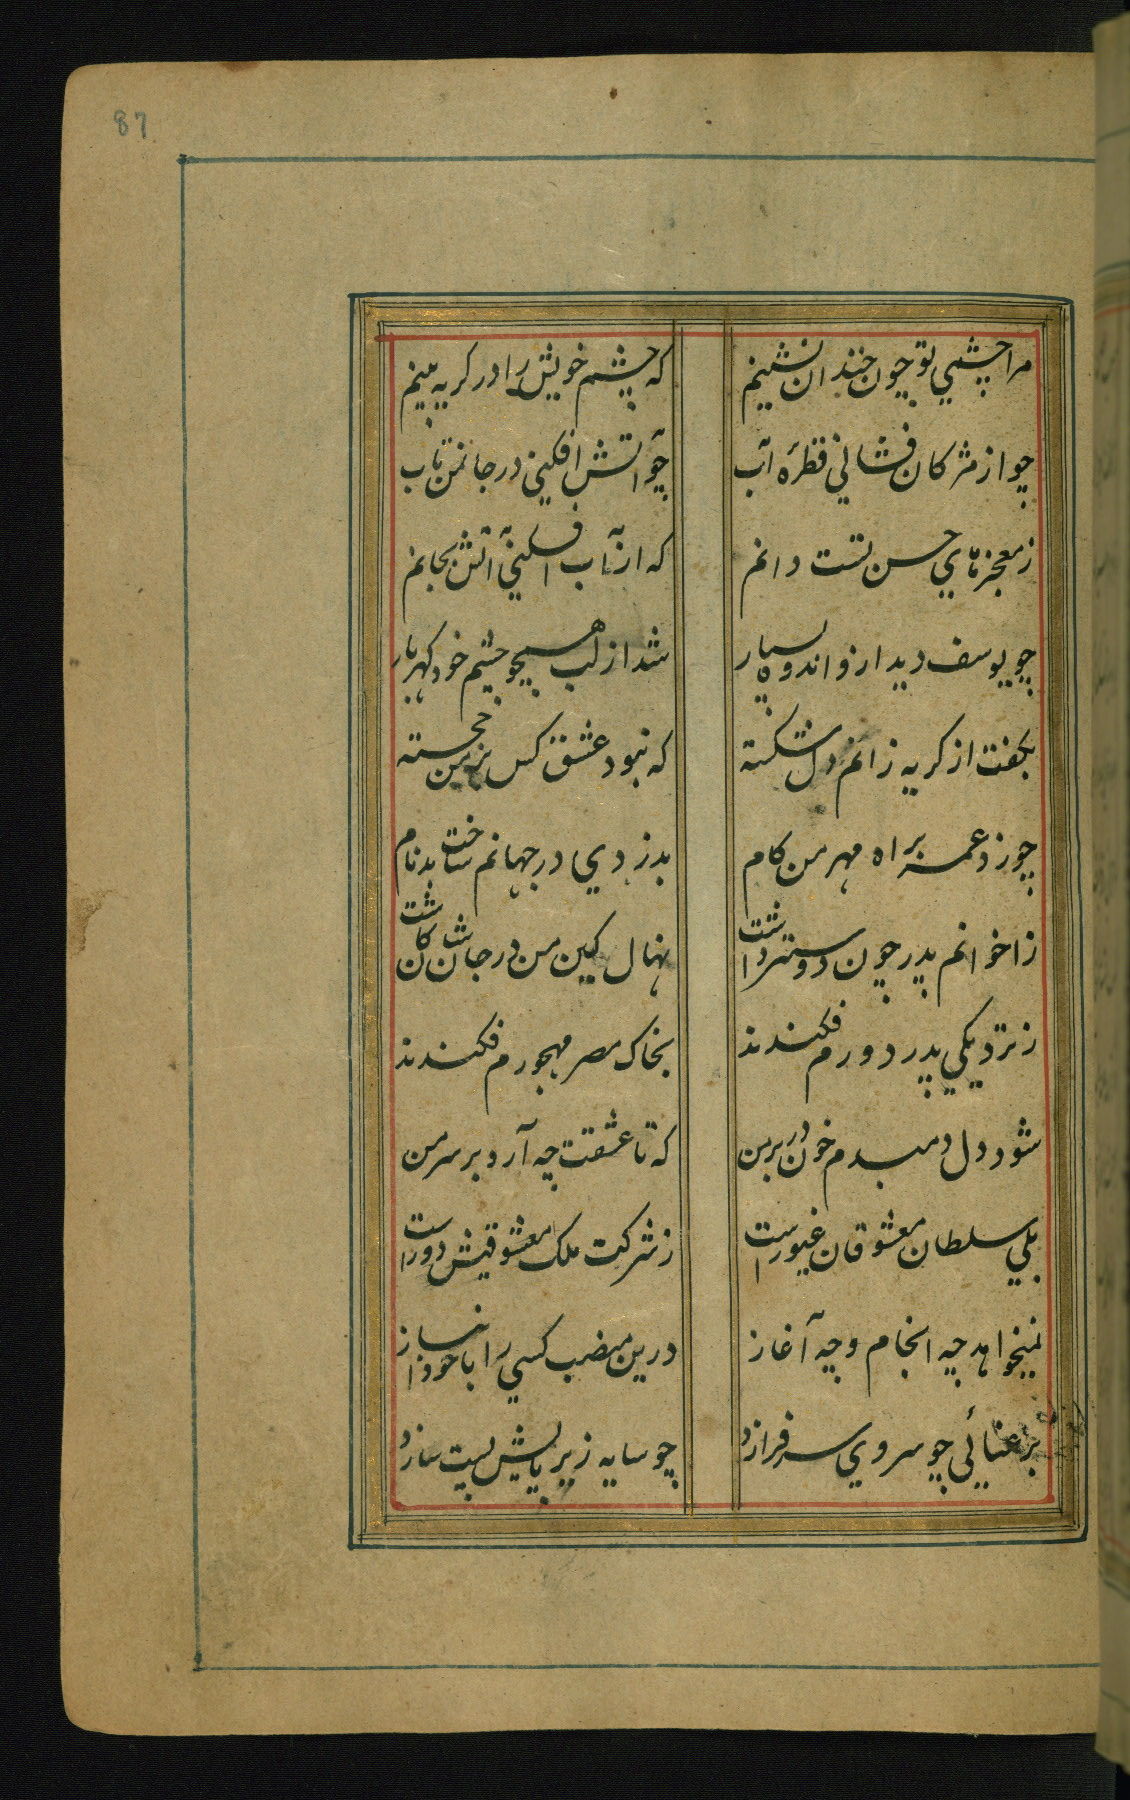 87
مرا چشمي تو چون خندان نشینم که چشم خویش را در کریه بینم
چو از مژکان فشاني قطرۀ آب چو آتش افکني در جانمن تاب
ز معجزهاي حسن تست دانم که از آب افکني آتش بجانم
چو یوسف دید ازو اندوه بسیار شد از لب همچو چشم خود کهربار
بکفت از کریه زانم دل شکسته که نبود عشق کس بر من خجسته
چو زد عمه براه مهر من کام بدزدي در جهانم ساخت بدنام
ز اخوانم پدر چون دوستر داشت نهال کین من در جانشان کاشت
ز نزدیکي پدر دورم فکندند بخاک مصر مهجورم فکندند
شود دل دمبدم خون در بر من که تا عشقت چه آرد بر سر من
بلي سلطان معشوقان غیورست ز شرکت ملک معشوقیش دورست
نمیخواهد چه انجام و چه آغاز درین منصب کسي را با خود انباز
برعنائي چو سروي سر فرازد چو سایه زیر پایش پست سازد